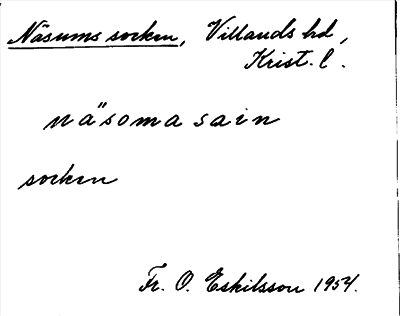 Näsums socken, Villands hd,
Krist. l.
näsoma sain
socken
Fr. O. Eskilsson 1954.